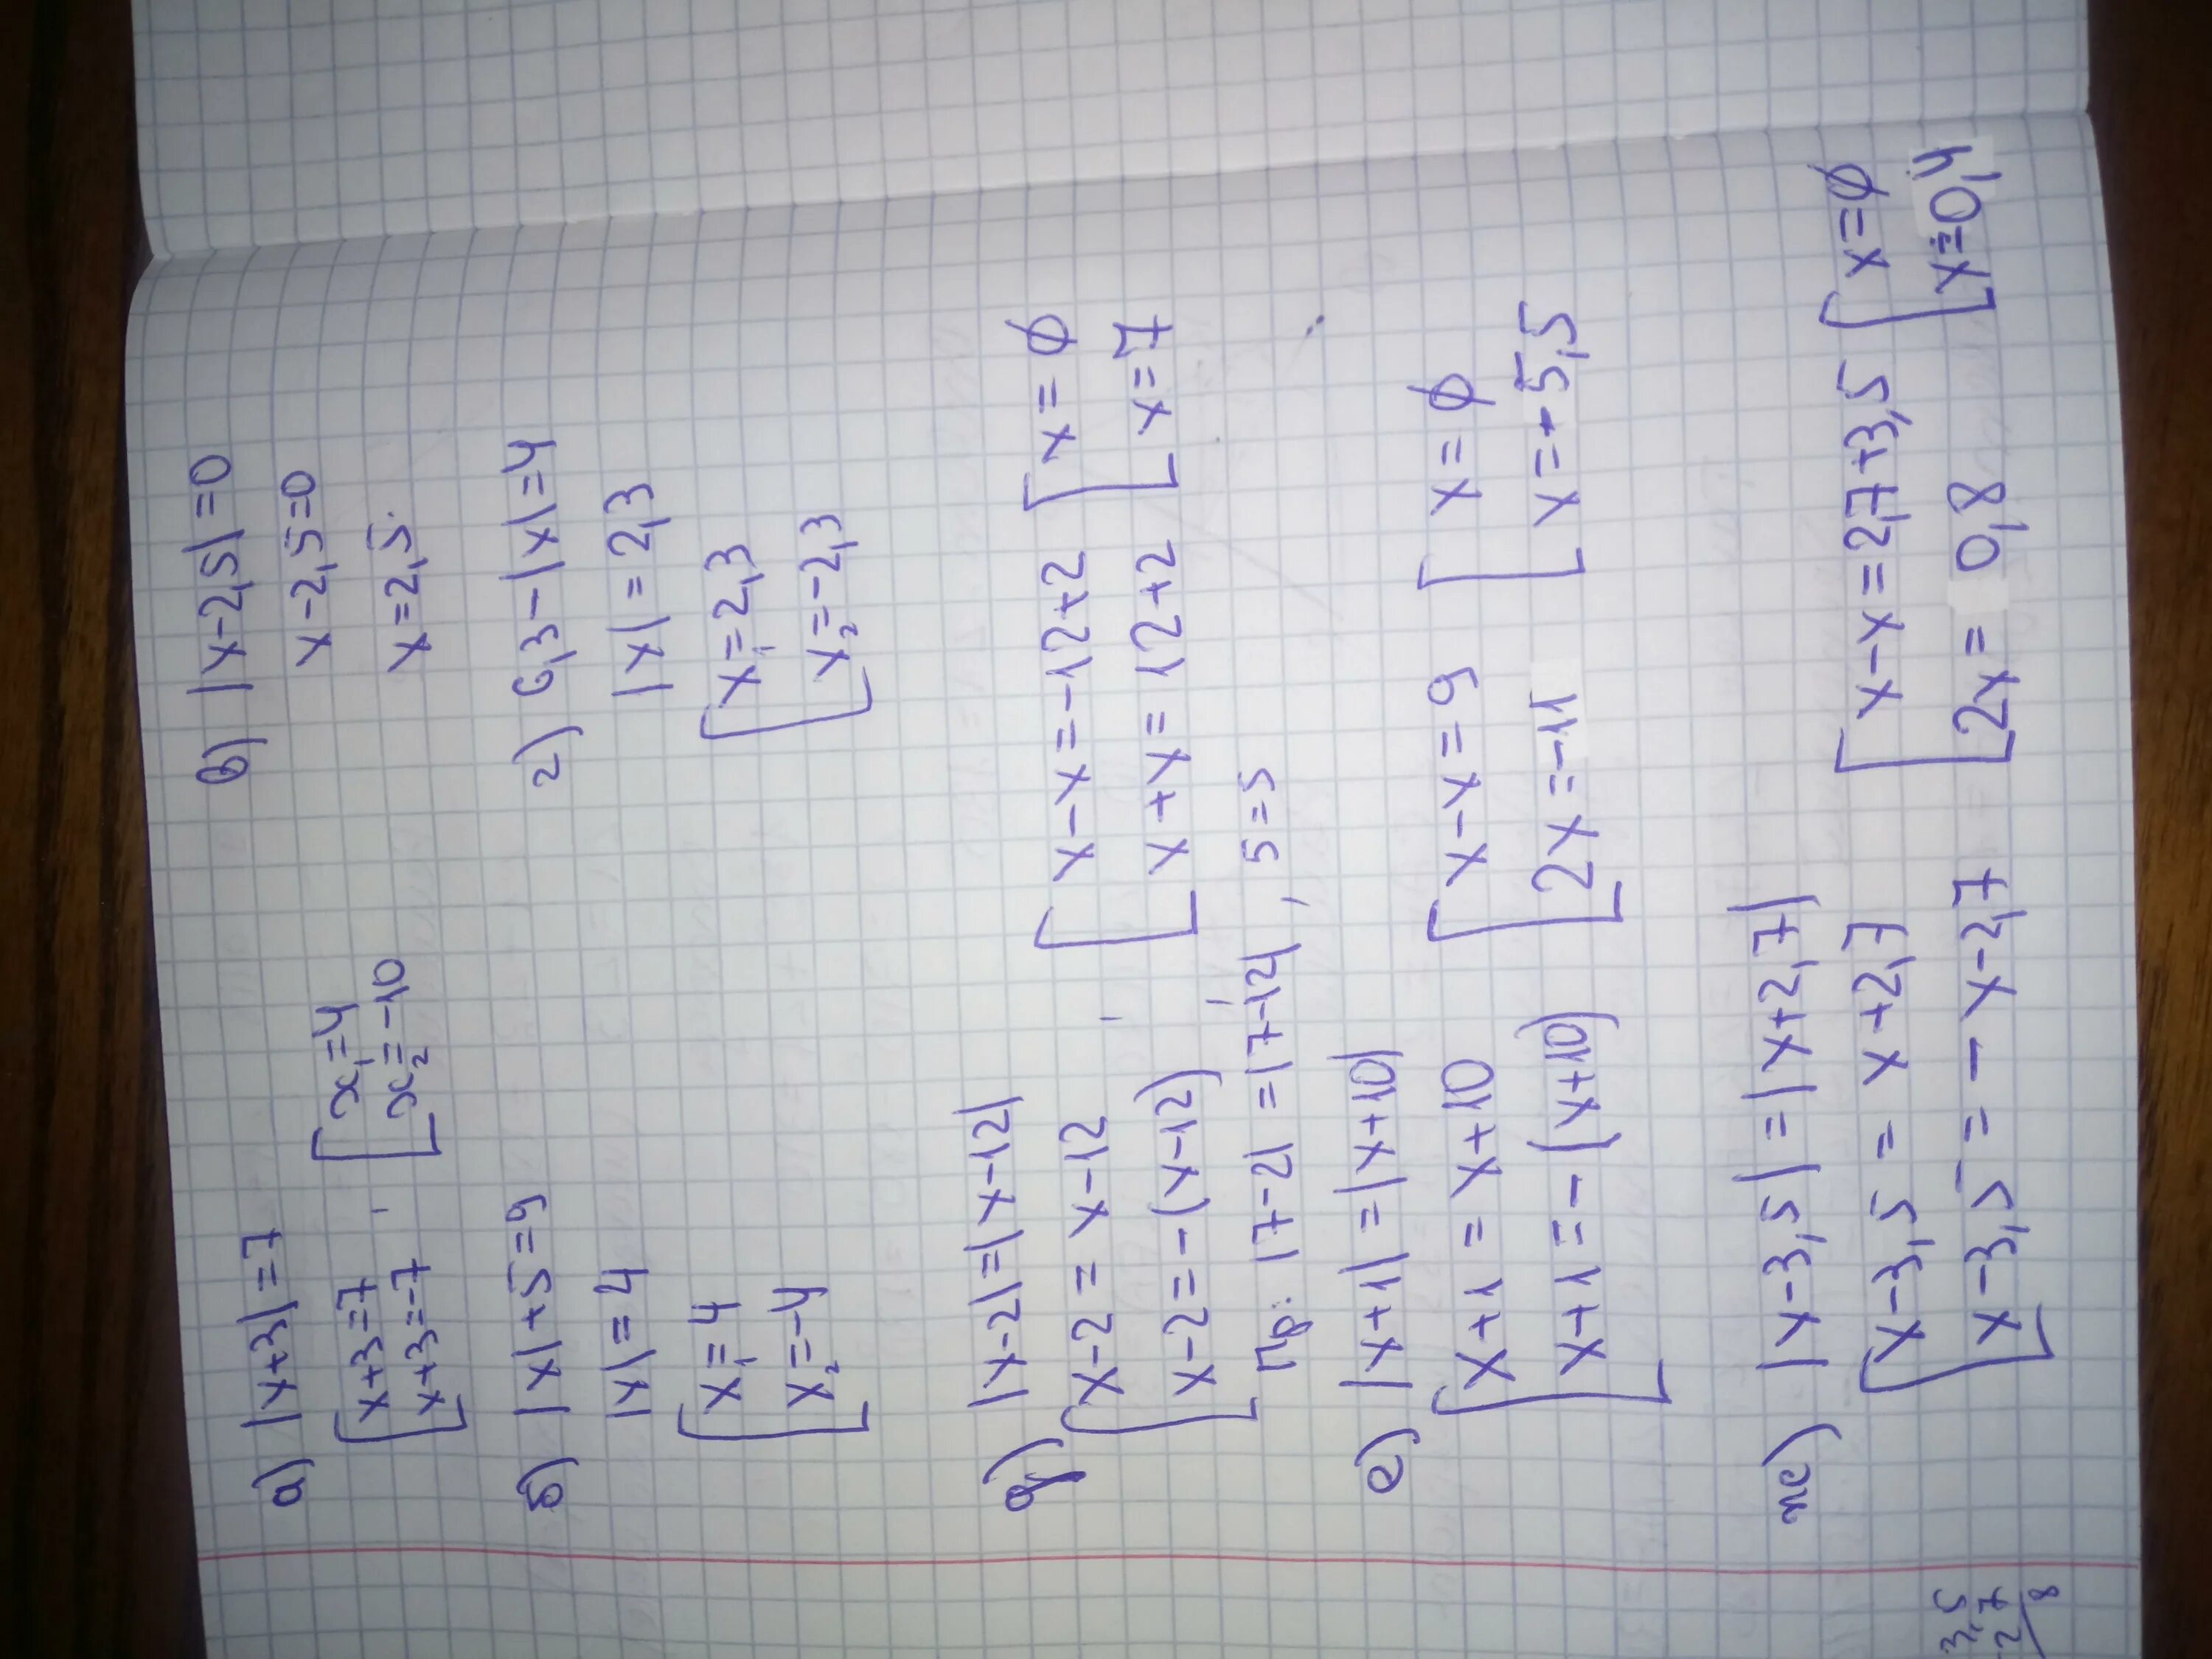 а) |x+3|=7
[x+3=7 [x₁=4
x+3=-7 x₂=-10
б) |x|+5=9
|x|=4
[x₁=4
x₂=-4
в) |x-2,5|=0
x-2,5=0
x=2,5.
г) 6,3-|x|=4
|x|=2,3
[x₁=2,3
x₂=-2,3
д) |x-2|=|x-12|
[x-2=x-12 [x-x=-12+2 [x=∅
x-2=-(x-12) x+x=12+2 x=7
Пр: |7-2|=|7-12|, 5=5
е) |x+1|=|x+10|
[x+1=x+10 [x-x=9 [x=∅
x+1=-(x+10) 2x=-11 x=-5,5
ж) |x-3,5|=|x+2,7|
[x-3,5=x+2,7 [x-x=2,7+3,5 [x=∅
x-3,5=-x-2,7 2x=0,8 x=0,4
3,5
2,7
8